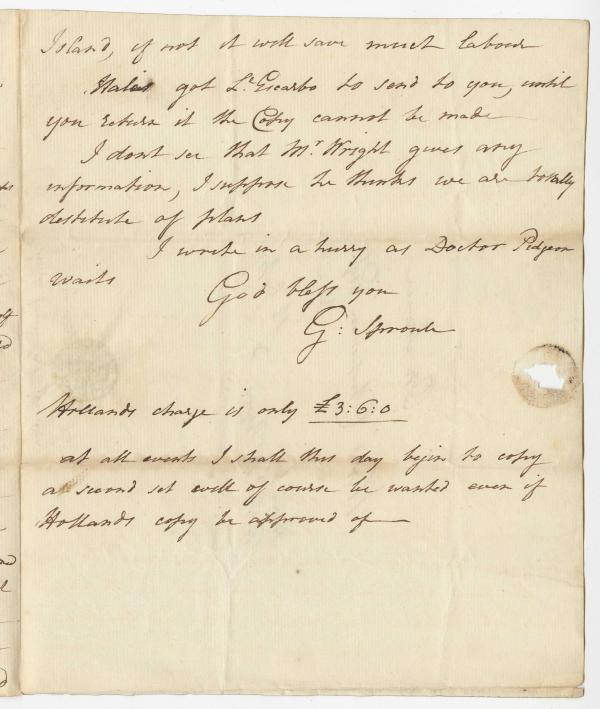 Island, if not it will save much labour
Hales got L'Escarbo to send to you, until
you return it the Copy cannot be made
I dont see that Mr. Wright gives any
information, I suppose he thinks we are totally
destitute of plans
I wrote in a hurry as Doctor Pidgeon
waits
God bless you
G: Sproule
Hollands charge is only £3:6:0
at all events I shall this day begin to copy
a second set will of course be wanted even if
Hollands copy be approved of